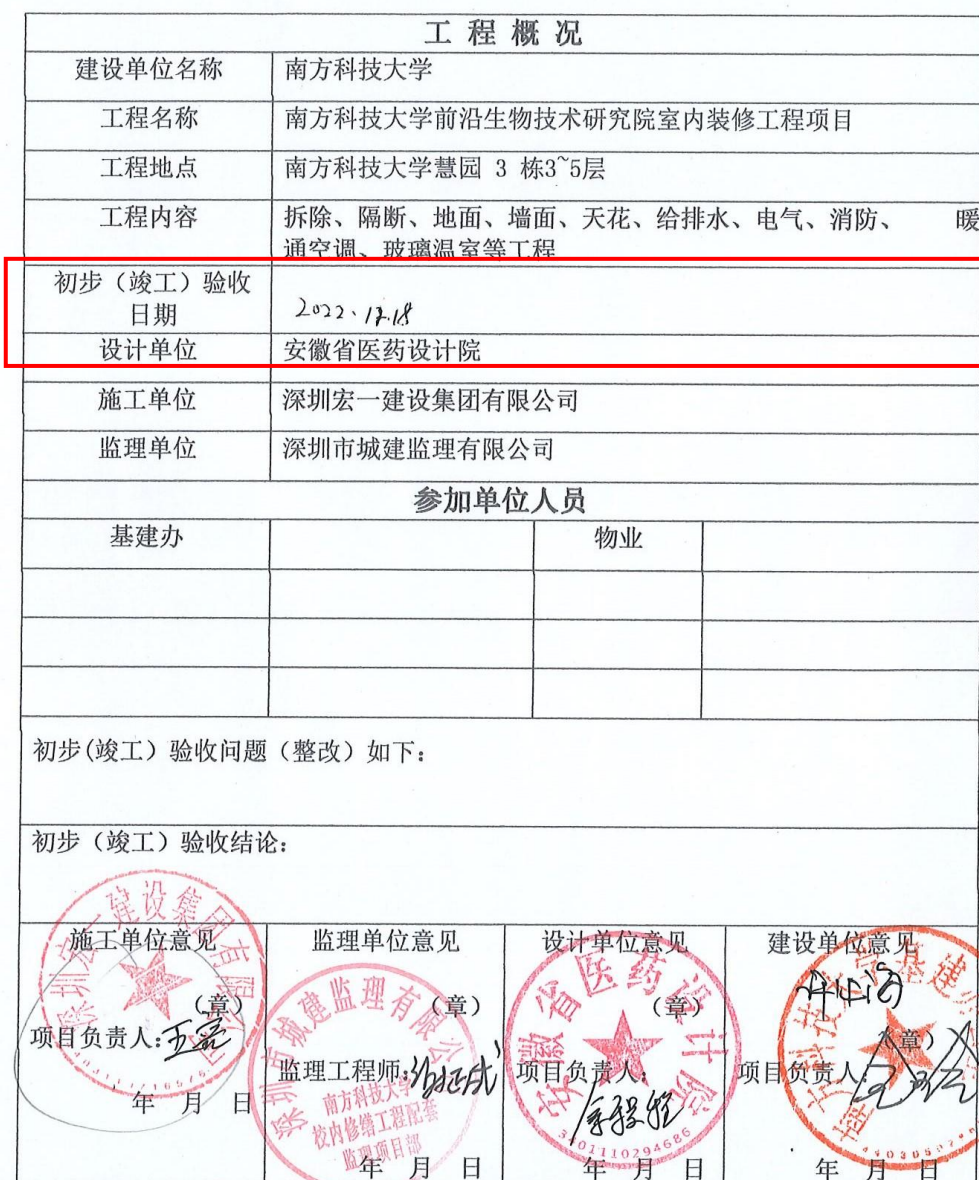 工程概况
建设单位名称 南方科技大学
工程名称 南方科技大学前沿生物技术研究院室内装修工程项目
工程地点 南方科技大学慧园 3 栋3~5层
工程内容 拆除、隔断、地面、墙面、天花、给排水、电气、消防、 暖
通空调、玻璃温室等工程
初步（竣工）验收
日期 2022.12.18
设计单位 安徽省医药设计院
施工单位 深圳宏一建设集团有限公司
监理单位 深圳市城建监理有限公司
参加单位人员
基建办 物业
初步(竣工）验收问题（整改）如下：
初步（竣工）验收结论：
施工单位意见 监理单位意见 设计单位意见 建设单位意见
（章） （章） （章） （章）
项目负责人: 监理工程师: 项目负责人: 项目负责人:
年 月 日 年 月 日 年 月 日 年 月 日
深圳宏一建设集团有限公司
深圳市城建监理有限公司
南方科技大学
校内修缮工程配套
监理项目部
安徽省医药设计院
3401110294686